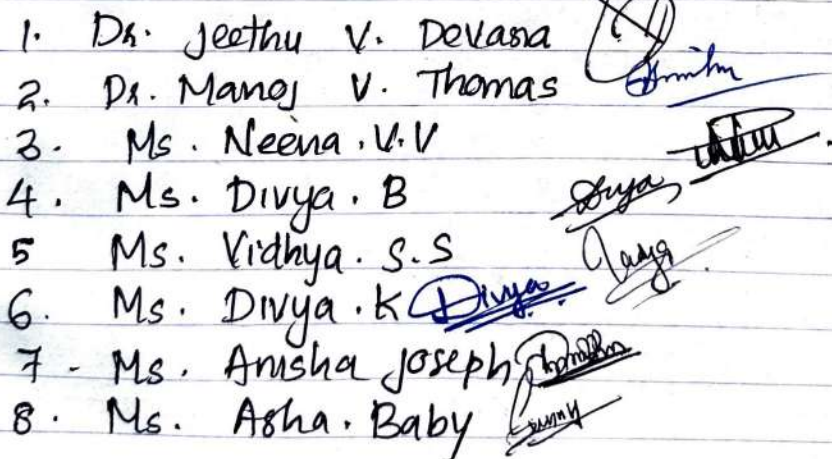 1. Dr. Jeethu V. Devasia
2. Dr. Manoj V. Thomas
3. Ms. Neena. V.V
4. Ms. Divya. B
5 Ms. Vidhya. S.S
6. Ms. Divya. K Divya
7 - Ms. Anisha Joseph
8. Ms. Asha. Baby